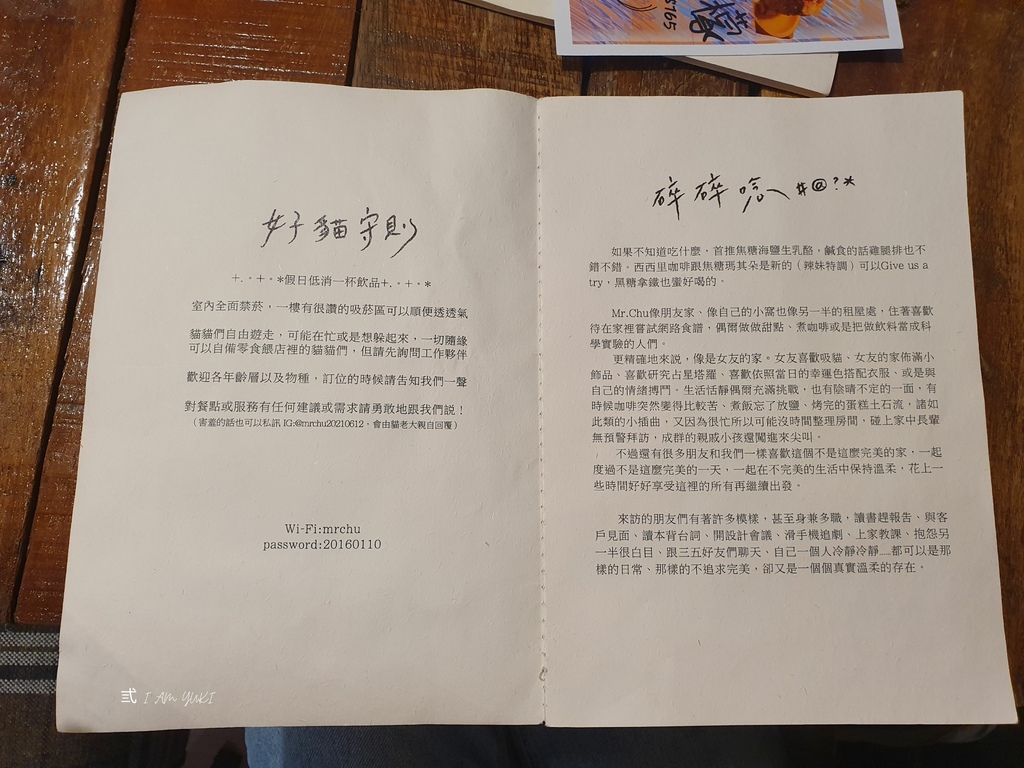 $165
好貓守則
+.。+.。*假日低消一杯飲品+.。+.。*
室內全面禁菸，一樓有很讚的吸菸區可以順便透透氣
貓貓們自由遊走，可能在忙或是想躲起來，一切隨緣
可以自備零食餵店裡的貓貓們，但請先詢問工作夥伴
歡迎各年齡層以及物種，訂位的時候請告知我們一聲
對餐點或服務有任何建議或需求請勇敢地跟我們說！
（害羞的話也可以私訊 IG:@mrchu20210612，會由貓老大親自回覆）
Wi-Fi:mrchu
password:20160110
碎碎唸 #@?*
如果不知道吃什麼，首推焦糖海鹽生乳酪，鹹食的話雞腿排也不
錯不錯。西西里咖啡跟焦糖瑪其朵是新的（辣妹特調）可以Give us a
try，黑糖拿鐵也蠻好喝的。
Mr.Chu像朋友家、像自己的小窩也像另一半的租屋處，住著喜歡
待在家裡嘗試網路食譜，偶爾做做甜點、煮咖啡或是把做飲料當成科
學實驗的人們。
更精確地來說，像是女友的家。女友喜歡吸貓、女友的家佈滿小
飾品、喜歡研究占星塔羅、喜歡依照當日的幸運色搭配衣服、或是與
自己的情緒搏鬥。生活恬靜偶爾充滿挑戰，也有陰晴不定的一面，有
時候咖啡突然變得比較苦、煮飯忘了放鹽、烤完的蛋糕土石流，諸如
此類的小插曲，又因為很忙所以可能沒時間整理房間，碰上家中長輩
無預警拜訪，成群的親戚小孩還闖進來尖叫。
不過還有很多朋友和我們一樣喜歡這個不是這麼完美的家，一起
度過不是這麼完美的一天，一起在不完美的生活中保持溫柔，花上一
些時間好好享受這裡的所有再繼續出發。
來訪的朋友們有著許多模樣，甚至身兼多職，讀書趕報告、與客
戶見面、讀本背台詞、開設計會議、滑手機追劇、上家教課、抱怨另
一半很白目、跟三五好友們聊天、自己一個人冷靜冷靜…都可以是那
樣的日常、那樣的不追求完美，卻又是一個個真實溫柔的存在。
貳 I AM YUKI